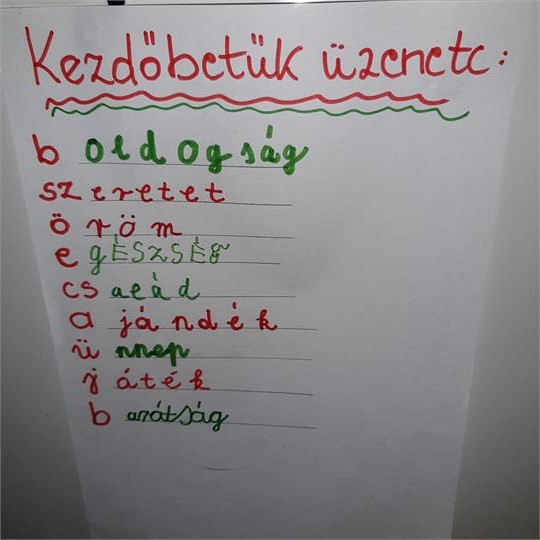 Kezdőbetűk üzenete:
b oldogság
sz eretet
ö röm
e gÉSZSÉg
cs alád
a jándék
ü nnep
j áték
b arátság